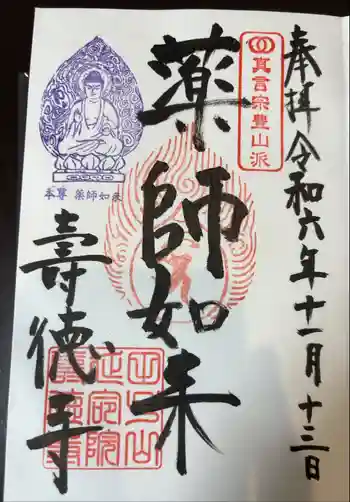 奉拝 令和六年十一月十三日
真言宗豊山派
薬師如来
本尊 薬師如来
壽徳寺